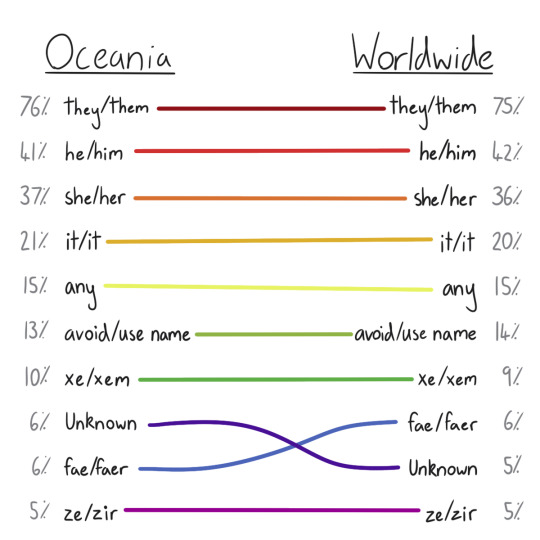 Oceania Worldwide
76% they/them they/them 75%
41% he/him he/him 42%
37% she/her she/her 36%
21% it/it it/it 20%
15% any any 15%
13% avoid/use name avoid/use name 14%
10% xe/xem xe/xem 9%
6% Unknown fae/faer 6%
6% fae/faer Unknown 5%
5% ze/zir ze/zir 5%